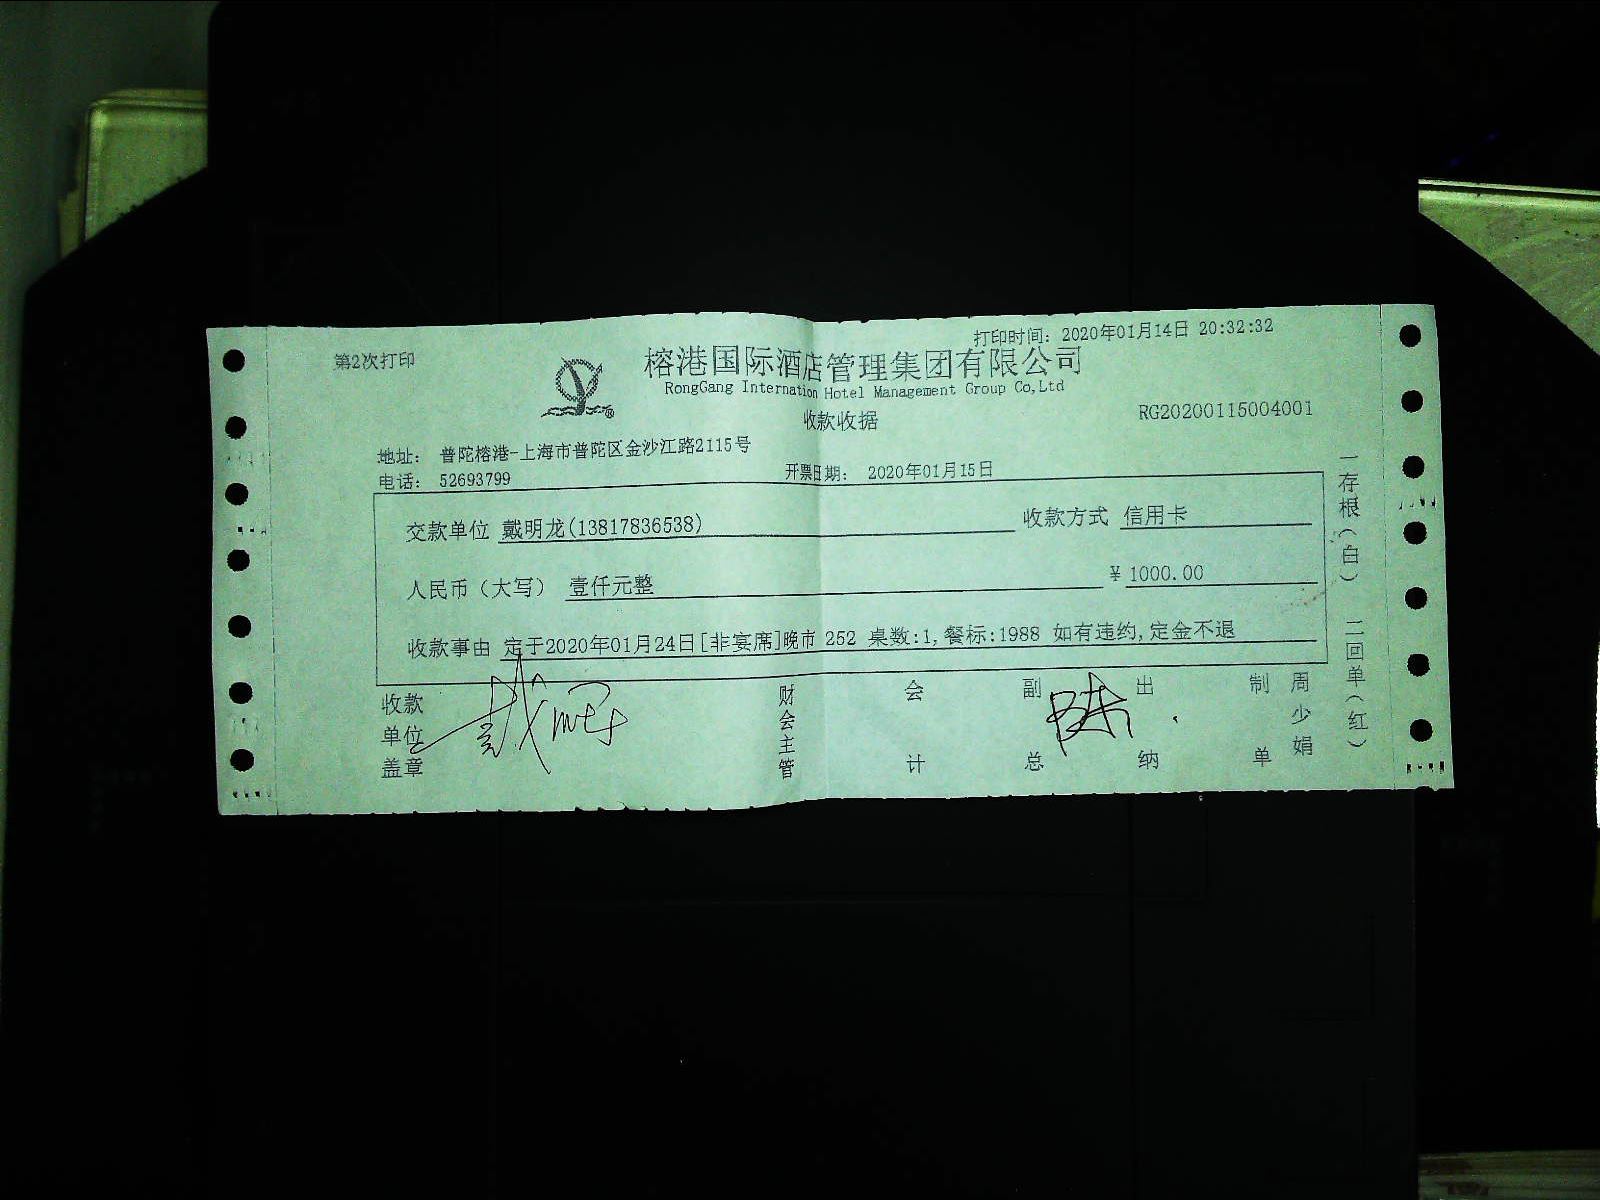 打印时间: 2020年01月14日 20:32:32
第2次打印
榕港国际酒店管理集团有限公司
RongGang Internation Hotel Management Group Co,Ltd
收款收据
RG20200115004001
地址: 普陀榕港-上海市普陀区金沙江路2115号
电话: 52693799
开票日期: 2020年01月15日
交款单位 戴明龙(13817836538) 收款方式 信用卡
人民币（大写） 壹仟元整 ¥ 1000.00
收款事由 定于2020年01月24日[非宴席]晚市 252 桌数:1,餐标:1988 如有违约,定金不退
收款单位盖章
财会主管
会计
副总
出纳
制单
周少娟
一存根(白)
二回单(红)